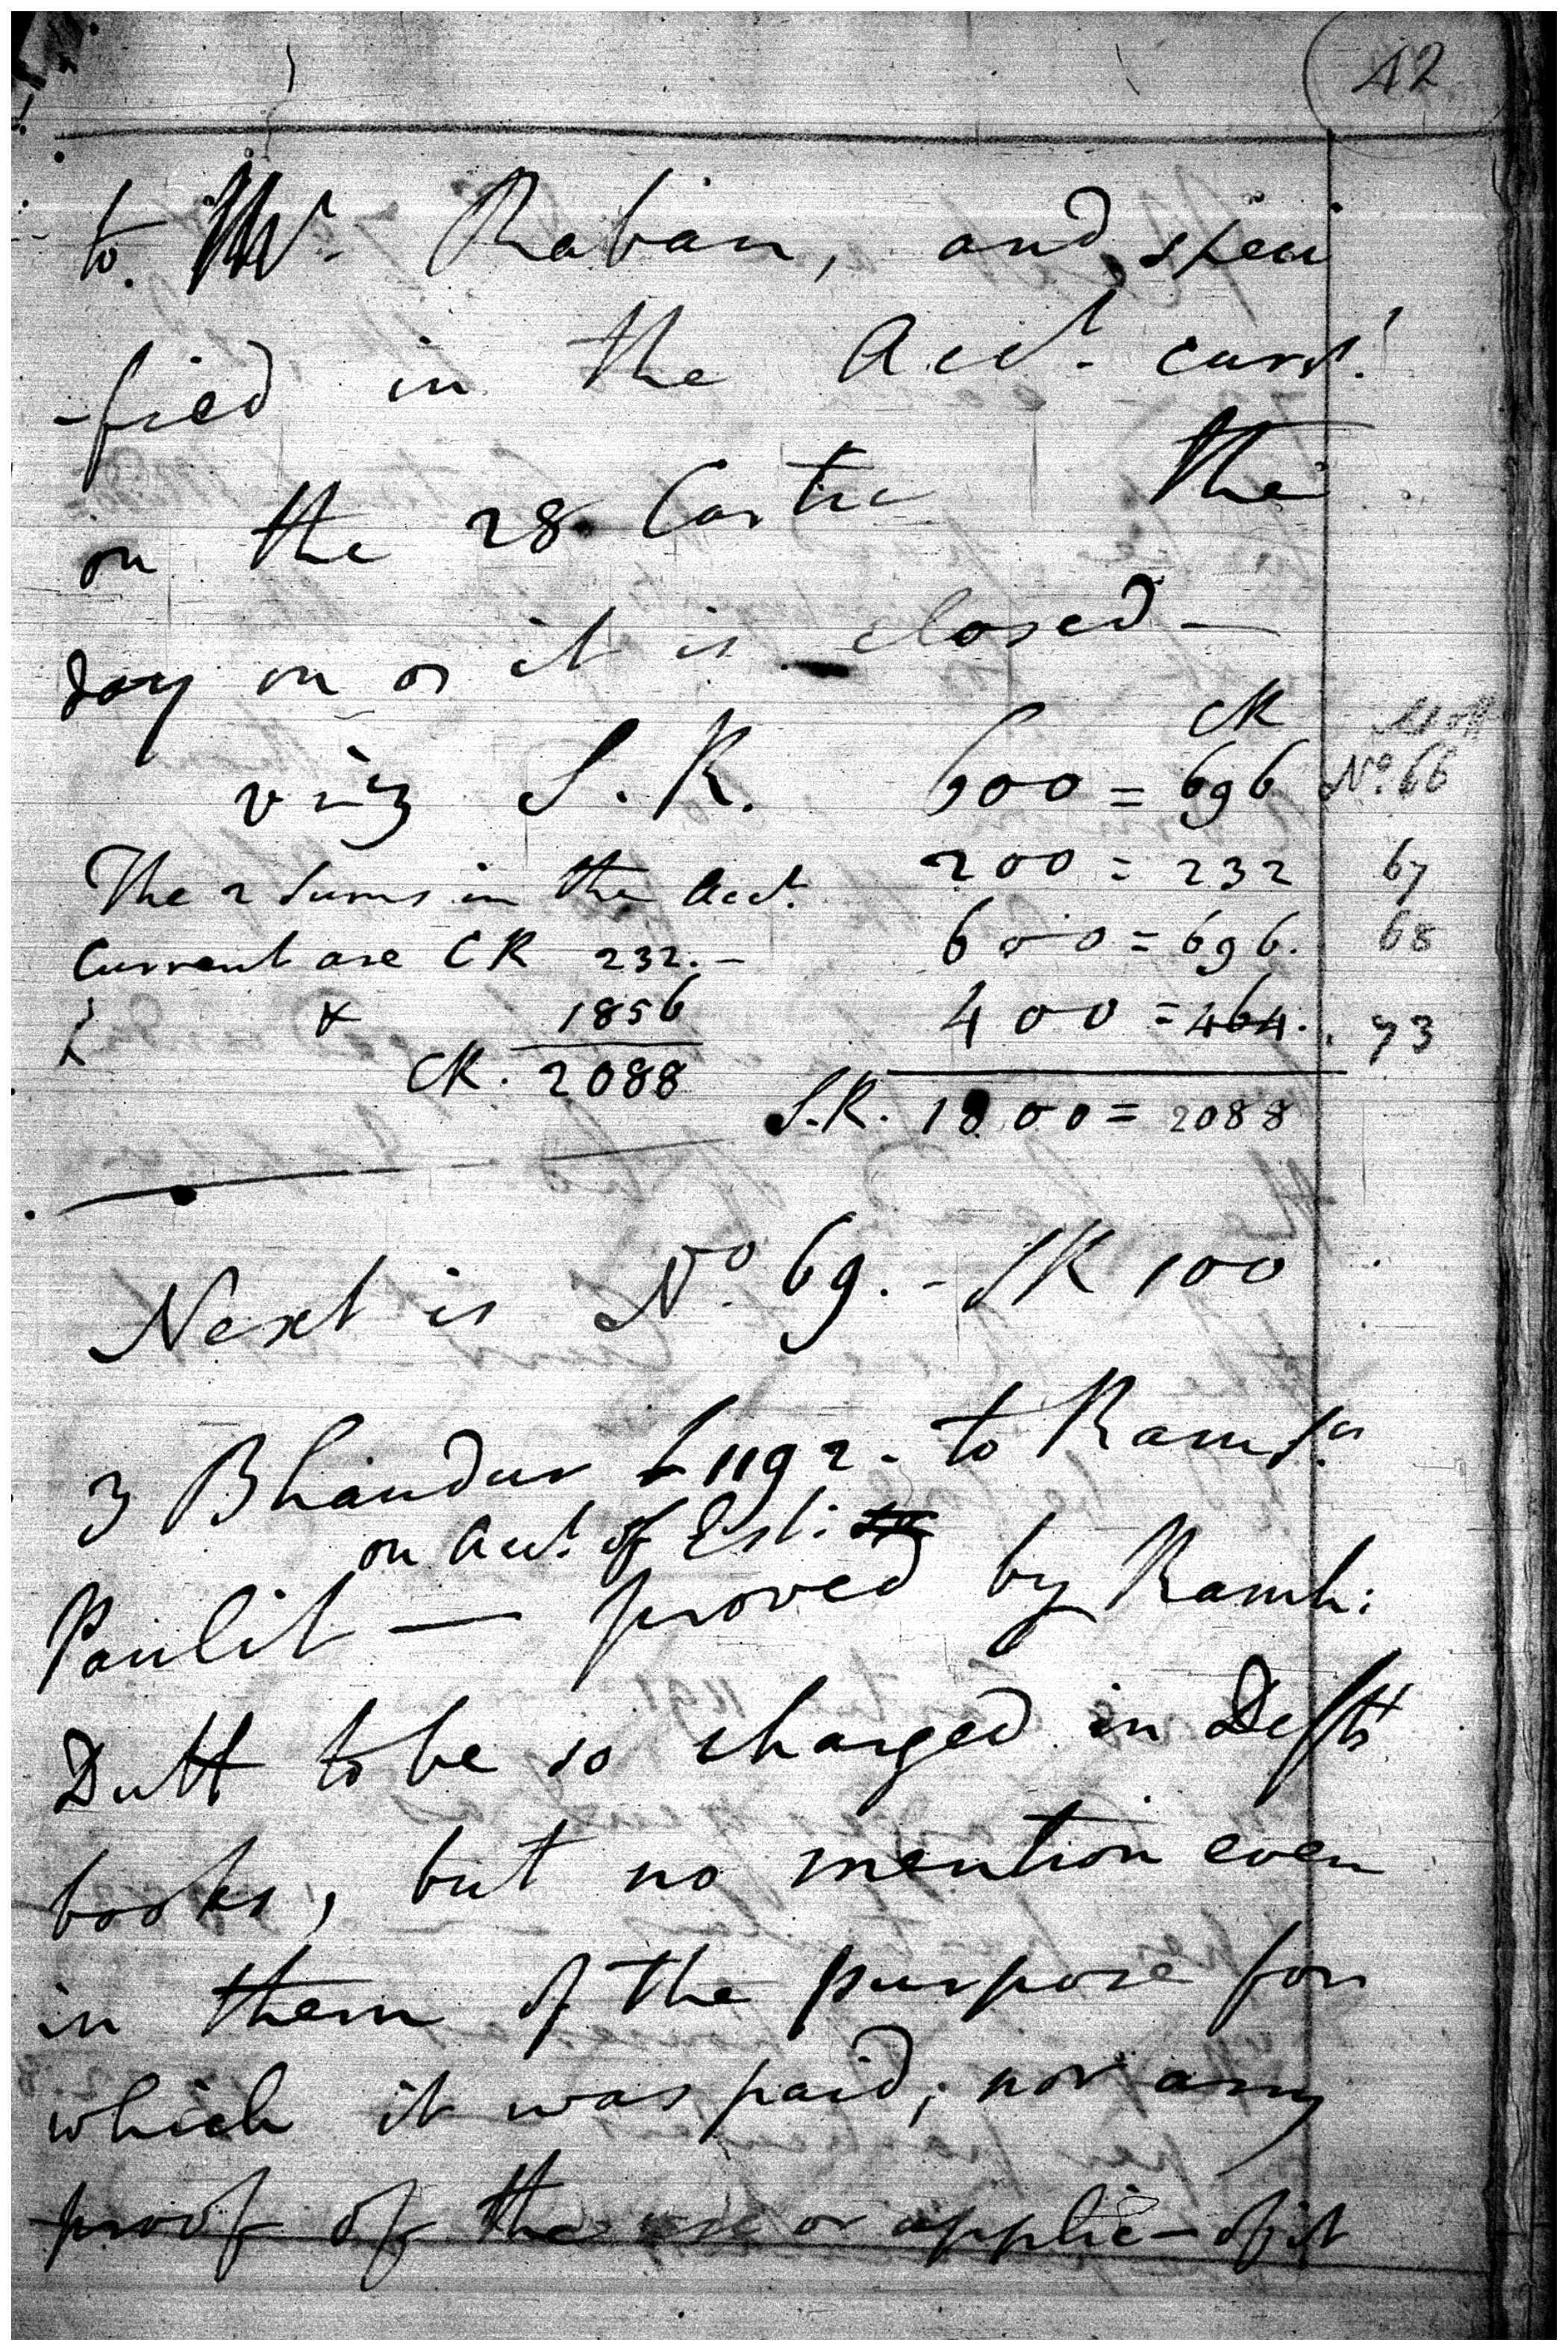 42
to Mr. Raban, and speci
-fied in the Acct. currt.
on the 28 Cartic the
day on wh it is closed —
viz S.R. 600 = 696 No. 66
CR
The 2 sums in the Acct. 200 = 232 67
Current are CR 232. - 600 = 696. 68
& 1856 400 = 464. 73
CR. 2088 S.R. 1800 = 2088
Next is No. 69. - SR 100
3 Bhaudur 1192. to Ram
on Acct. of Est:
Paulit — proved by Ramk:
Dutt to be so charged in Defts
books, but no mention even
in them of the purpose for
which it was paid; nor any
proof of the use or applic- of it